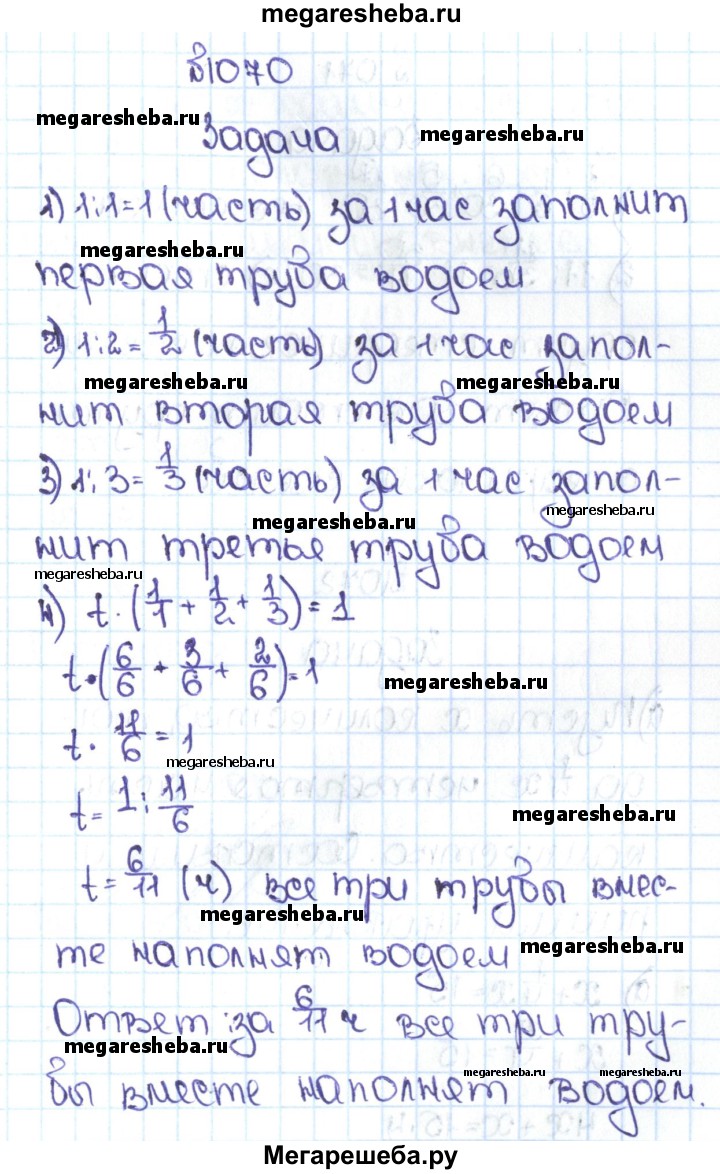 megaresheba.ru
№1070
megaresheba.ru
Задача
megaresheba.ru
1) 1:1=1 (часть) за 1 час заполнит
megaresheba.ru
первая труба водоем
2) 1:2=1/2 (часть) за 1 час запол-
megaresheba.ru
megaresheba.ru
нит вторая труба водоем
3) 1:3=1/3 (часть) за 1 час запол-
megaresheba.ru
megaresheba.ru
нит третья труба водоем
megaresheba.ru
4) t·(1/1+1/2+1/3)=1
t·(6/6+3/6+2/6)=1
megaresheba.ru
t·11/6=1
megaresheba.ru
t=1:11/6
megaresheba.ru
t=6/11 (ч) все три трубы вмес-
megaresheba.ru
те наполнят водоем
megaresheba.ru
Ответ: за 6/11 ч все три тру-
megaresheba.ru
megaresheba.ru
megaresheba.ru
бы вместе наполнят водоем.
Мегарешеба.ру